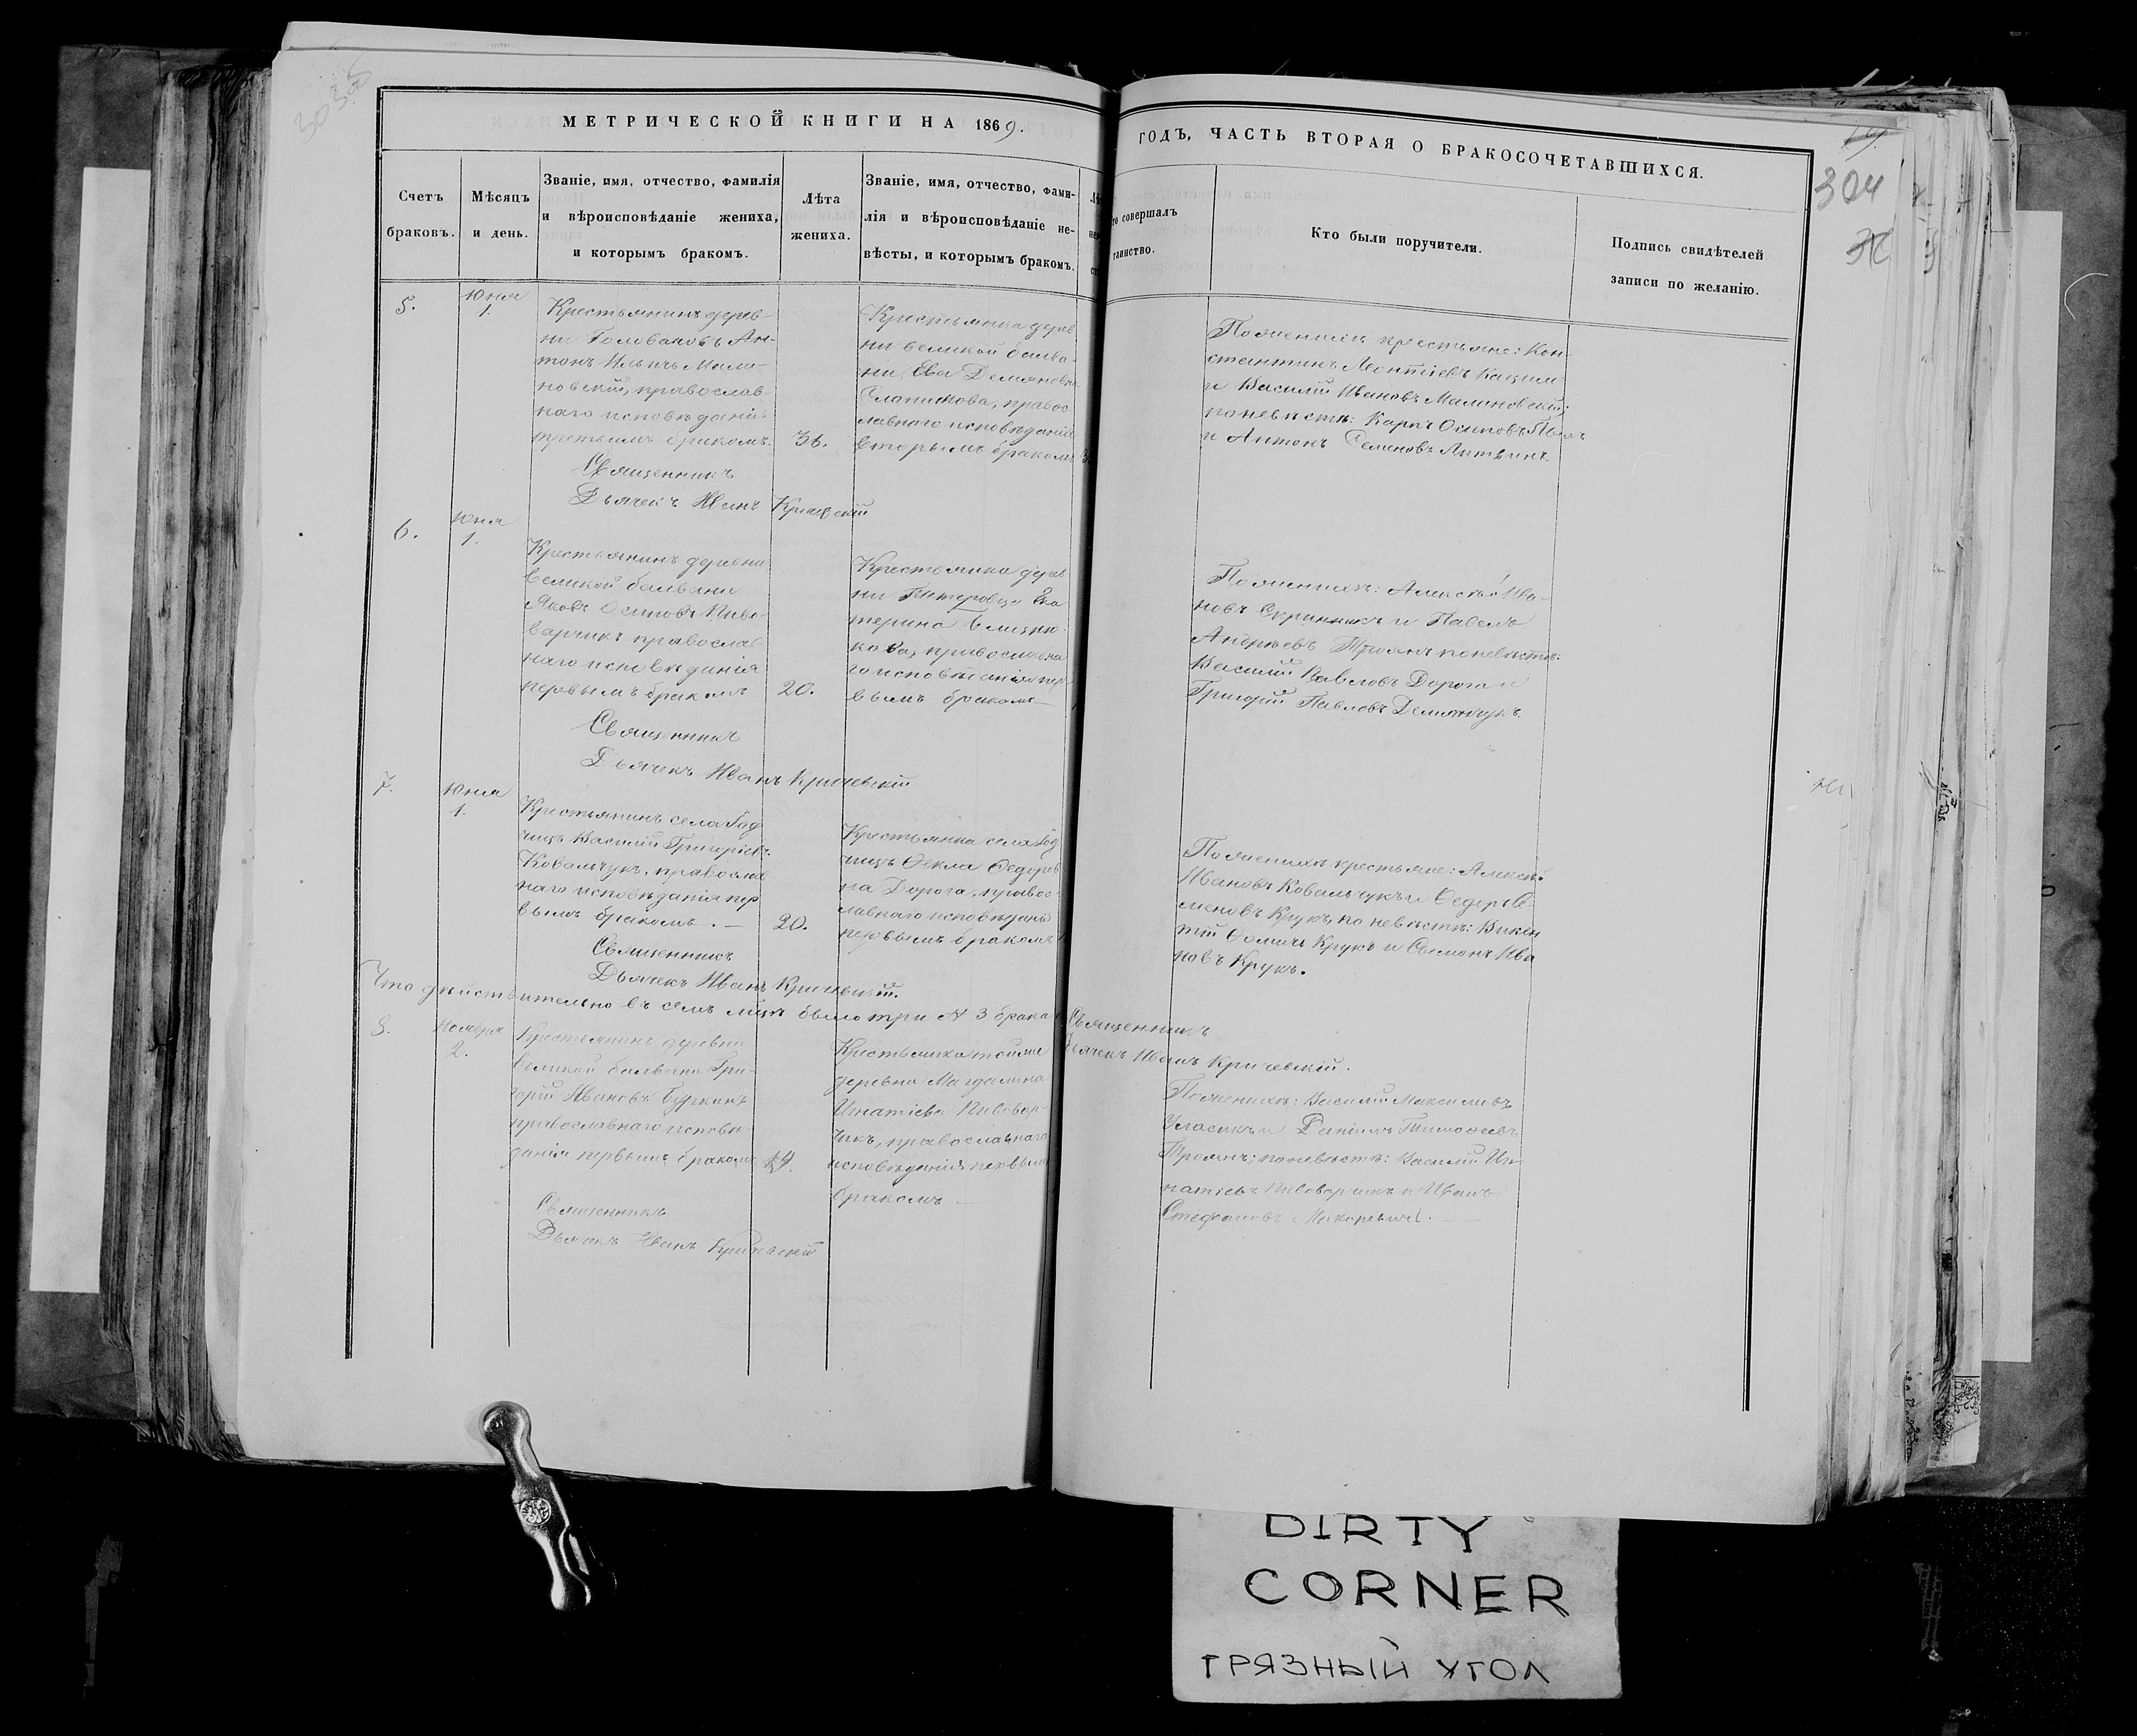 МЕТРИЧЕСКОЙ КНИГИ НА 1869.
ГОДЪ, ЧАСТЬ ВТОРАЯ О БРАКОСОЧЕТАВШИХСЯ.
304
Счетъ
браковъ.
Мѣсяцъ
и день.
Званіе, имя, отчество, фамилія
и вѣроисповѣданіе жениха,
и которымъ бракомъ.
Лѣта
жениха.
Званіе, имя, отчество, фами-
лія и вѣроисповѣданіе не-
вѣсты, и которымъ бракомъ.
совершалъ
таинство.
Кто были поручители.
Подпись свидѣтелей
записи по желанію.
5.
Юня
1.
Крестьянинъ дерев-
ни Головановъ Ан-
тонъ Ильичъ Мали-
новскій, православ-
наго исповѣданія
третьимъ бракомъ.
36.
Крестьянка дерев
ни великой
ни Ева Демяновна
православ
лавнаго исповѣданія
вторымъ бракомъ
По женихѣ крестьяне: Кон-
стантинъ Леонтіевъ
и Василій Ивановъ Малиновскій;
по невѣстѣ: Карпъ Осиповъ
и Антонъ Семеновъ Литвинъ.
Священникъ
Дьячекъ Иванъ Кричевскій
6.
Юня
1.
Крестьянинъ деревни
великой
Яковъ Осиповъ Пиво-
варчикъ православ
наго исповѣданія
первымъ бракомъ
20.
Крестьянка дерев
ни Ека
терина
кова, православна
го исповѣданія пер-
вымъ бракомъ
По женихѣ: Алексѣй Ива-
новъ Скринникъ и Павелъ
Андреевъ Троянъ по невѣстѣ:
Василій Павловъ Дорога и
Григорій Павловъ Демянчукъ.
Священникъ
Дьячекъ Иванъ Кричевскій
7.
Юня
1.
Крестьянинъ села Год
чицъ Василій Григоріевъ
Ковальчукъ, православ
наго исповѣданія пер
вымъ бракомъ. —
20.
Крестьянка села Год
чицъ Ѳекла Ѳедоров
на Дорога, правос-
лавнаго исповѣданія
первымъ бракомъ
По женихѣ крестьяне: Алексѣй
Ивановъ Ковальчукъ и Ѳедоръ Се
меновъ Крукъ, по невѣстѣ: Викен
тій Ѳоминъ Крукъ и Симонъ Ива
новъ Крукъ.
Священникъ
Дьячекъ Иванъ Кричевскій.
Что дѣйствительно въ семъ мцѣ было три № 3 брака Священникъ
Дьячекъ Иванъ Кричевскій.
8.
Ноября
2.
Крестьянинъ деревни
великой Гри-
горій Ивановъ
православнаго исповѣ-
данія первымъ бракомъ
24.
Крестьянка тойже
деревни Магдалина
Игнатіева Пивовар
чикъ, православнаго
исповѣданія первымъ
бракомъ —
По женихѣ: Василій Максимовъ
Уласикъ и Даніилъ Тимоѳеевъ
Троянъ; по невѣстѣ: Василій Иг-
натіевъ Пивоварчикъ и Иванъ
Стефановъ Макаревичъ. —
Священникъ
Дьячекъ Иванъ Кричевскій
DIRTY
CORNER
ГРЯЗНЫЙ УГОЛ